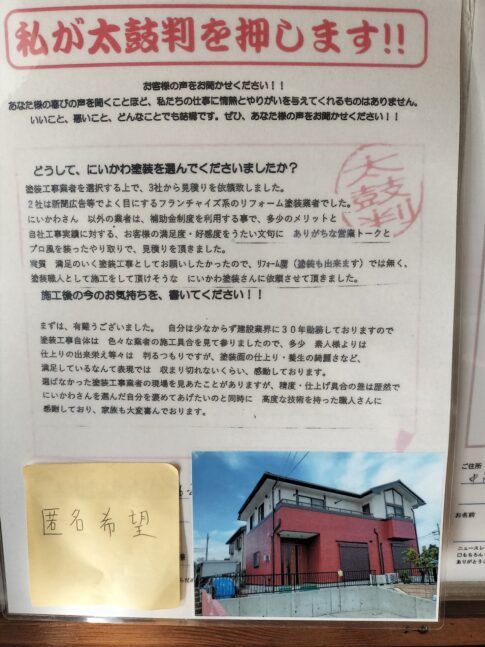 私が太鼓判を押します!!
お客様の声をお聞かせください！！
あなた様の喜びの声を聞くことほど、私たちの仕事に情熱とやりがいを与えてくれるものはありません。
いいこと、悪いこと、どんなことでも結構です。ぜひ、あなた様の声をお聞かせください！！
太鼓判
どうして、にいかわ塗装を選んでくださいましたか？
塗装工事業者を選択する上で、3社から見積りを依頼致しました。
2社は新聞広告等でよく目にするフランチャイズ系のリフォーム塗装業者でした。
にいかわさん 以外の業者は、補助金制度を利用する事で、多少のメリットと
自社工事実績に対する、お客様の満足度・好感度をうたい文句に ありがちな営業トークと
プロ風を装ったやり取りで、見積りを頂きました。
実質 満足のいく塗装工事としてお願いしたかったので、リフォーム屋（塗装も出来ます）では無く、
塗装職人として施工をして頂けそうな にいかわ塗装さんに依頼させて頂きました。
施工後の今のお気持ちを、書いてください！！
まずは、有難うございました。 自分は少なからず建設業界に３０年勤務しておりますので
塗装工事自体は 色々な業者の施工具合を見て参りましたので、多少 素人様よりは
仕上りの出来栄え等々は 判るつもりですが、塗装面の仕上り・養生の綺麗さなど、
満足しているなんて表現では 収まり切れないくらい、感動しております。
選ばなかった塗装工事業者の現場を見あたことがありますが、精度・仕上げ具合の差は歴然で
にいかわさんを選んだ自分を褒めてあげたいのと同時に 高度な技術を持った職人さんに
感謝しており、家族も大変喜んでおります。
匿名希望
ご住所
お名前
ニュースレ
□もちろん
ありがとうこ